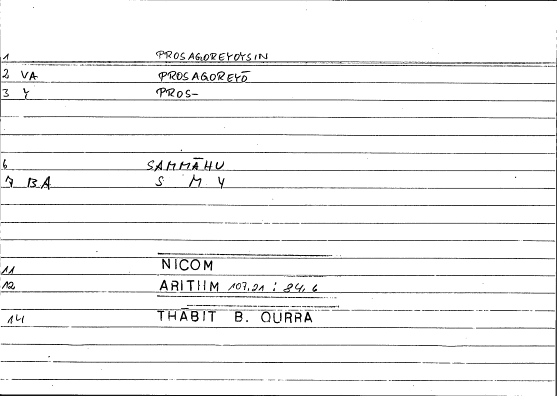 1 PROSAGOREYOYSIN
2 VA PROSAGOREYŌ
3 Y PROS-
6 SAMMĀHU
7 BA S M Y
11 NICOM
12 ARITHM 107,21 : 84,6
14 THĀBIT B. QURRA